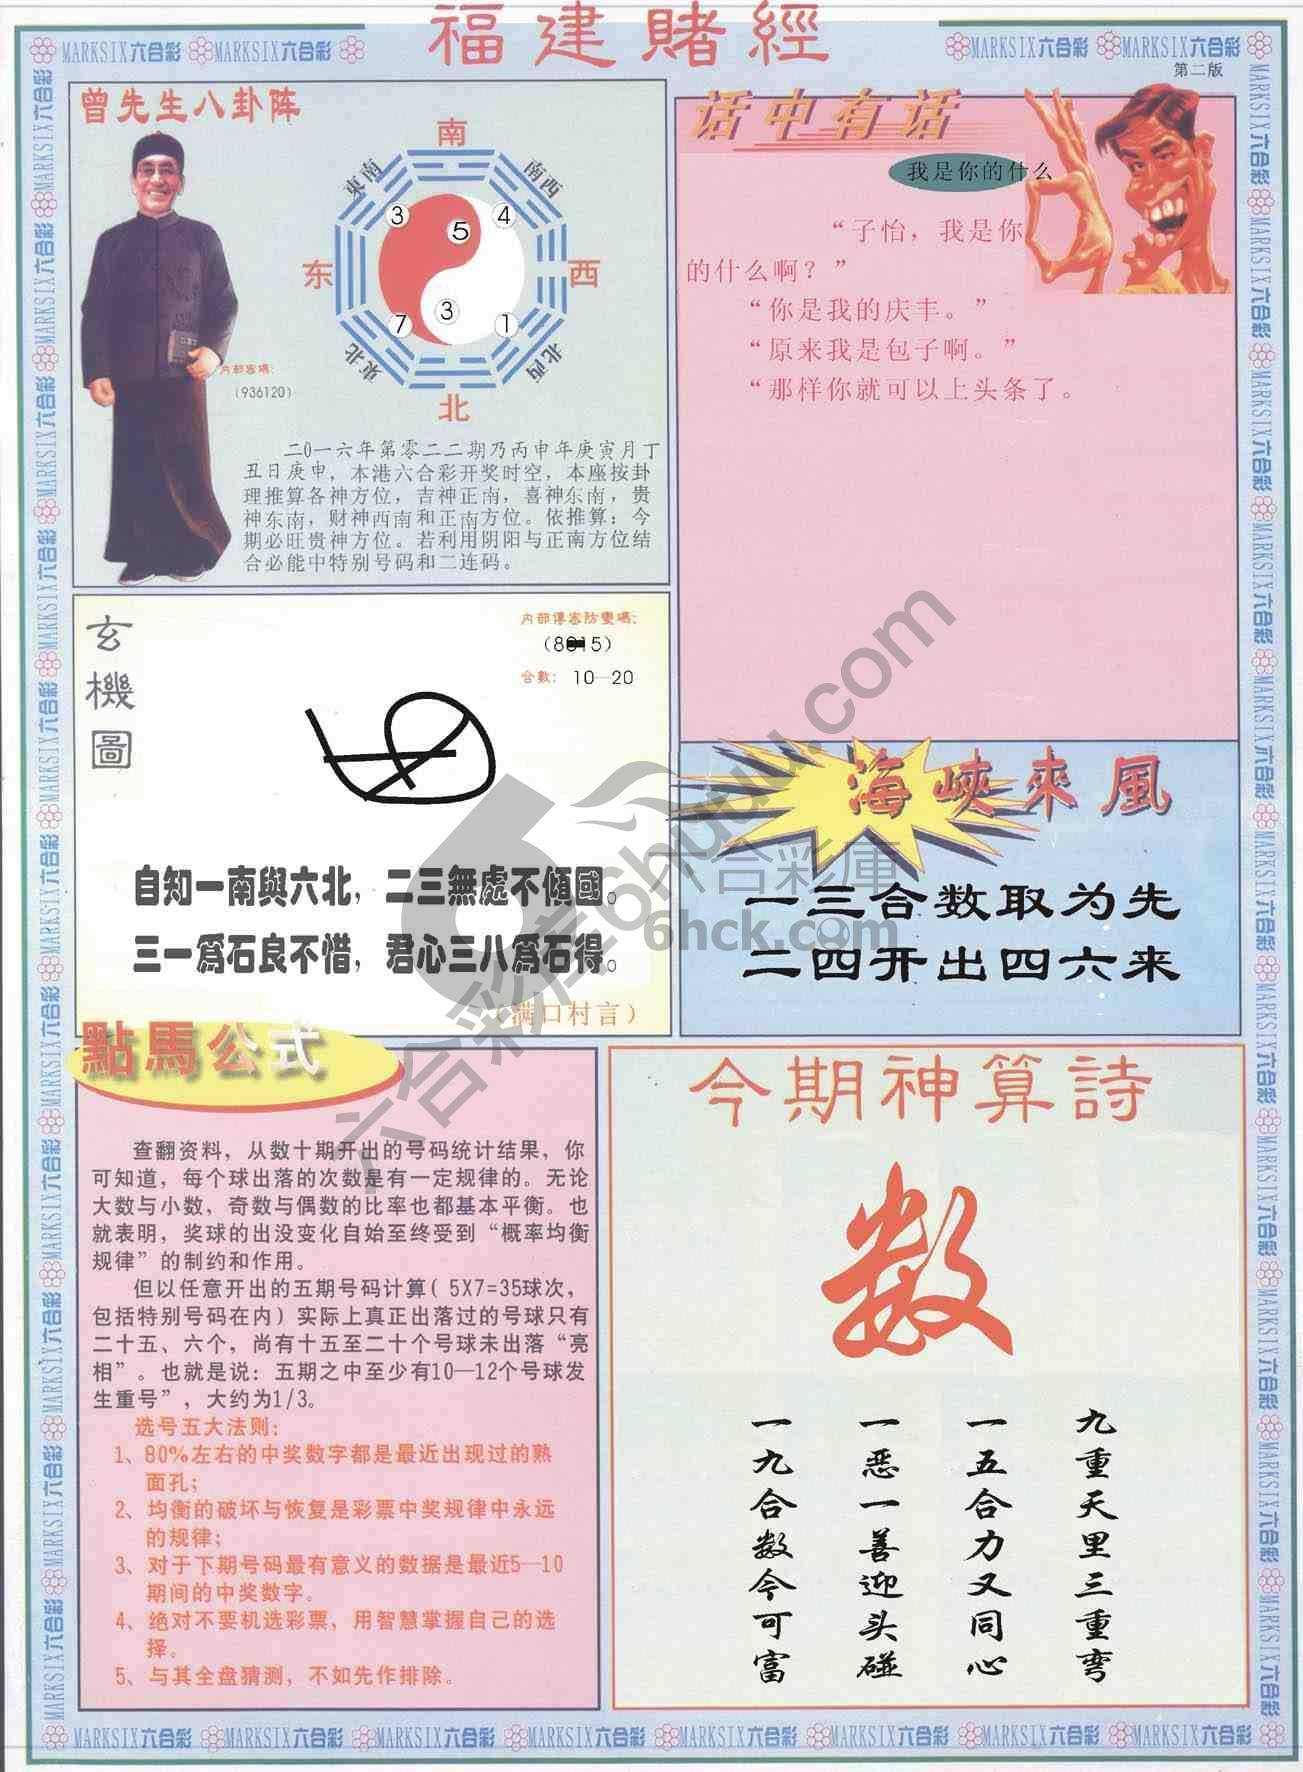 福建賭經
MARKSIX六合彩 MARKSIX六合彩
MARKSIX六合彩 MARKSIX六合彩
第二版
曾先生八卦阵
南
東南
南西
3
5
4
东
西
7
3
1
東北
北西
北
内部密碼：
（936120）
二0一六年第零二二期乃丙申年庚寅月丁
丑日庚申，本港六合彩开奖时空，本座按卦
理推算各神方位，吉神正南，喜神东南，贵
神东南，财神西南和正南方位。依推算：今
期必旺贵神方位。若利用阴阳与正南方位结
合必能中特别号码和二连码。
话中有话
我是你的什么
“子怡，我是你
的什么啊？”
“你是我的庆丰。”
“原来我是包子啊。”
“那样你就可以上头条了。
玄機圖
内部傳密防變碼：
合數： 10—20
自知一南與六北，二三無處不傾國。
三一爲石良不惜，君心三八爲石得。
（满口村言）
海峽來風
一三合数取为先
二四开出四六来
點馬公式
查翻资料，从数十期开出的号码统计结果，你
可知道，每个球出落的次数是有一定规律的。无论
大数与小数，奇数与偶数的比率也都基本平衡。也
就表明，奖球的出没变化自始至终受到“概率均衡
规律”的制约和作用。
但以任意开出的五期号码计算( 5X7=35球次，
包括特别号码在内) 实际上真正出落过的号球只有
二十五、六个，尚有十五至二十个号球未出落“亮
相”。也就是说：五期之中至少有10—12个号球发
生重号”，大约为1/3。
选号五大法则：
1、80%左右的中奖数字都是最近出现过的熟
面孔；
2、均衡的破坏与恢复是彩票中奖规律中永远
的规律；
3、对于下期号码最有意义的数据是最近5—10
期间的中奖数字。
4、绝对不要机选彩票，用智慧掌握自己的选
择。
5、与其全盘猜测，不如先作排除。
今期神算詩
数
九重天里三重弯
一五合力又同心
一恶一善迎头碰
一九合数今可富
六合彩库6huquu.com
六合彩庫
6hck.com
MARKSIX六合彩 MARKSIX六合彩 MARKSIX六合彩 MARKSIX六合彩 MARKSIX六合彩 MARKSIX六合彩 MARKSIX六合彩 MARKSIX六合彩